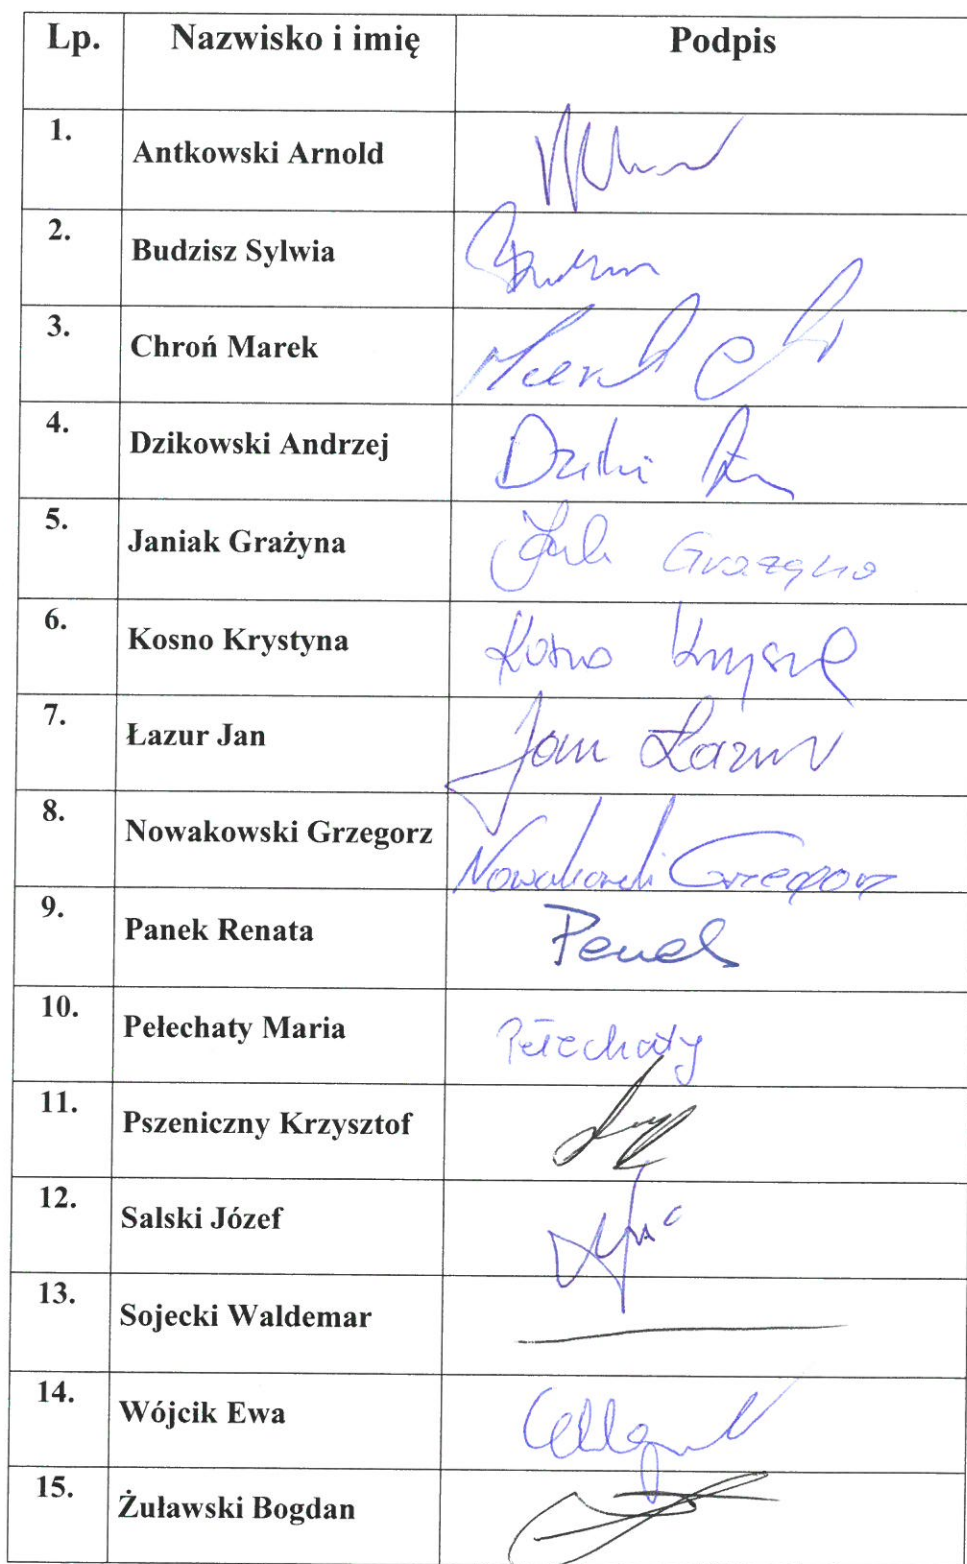 Lp. Nazwisko i imię Podpis
1. Antkowski Arnold
2. Budzisz Sylwia
3. Chroń Marek Marek
4. Dzikowski Andrzej
5. Janiak Grażyna Grażyna
6. Kosno Krystyna Kosno
7. Łazur Jan Jan Łazur
8. Nowakowski Grzegorz Nowakowski Grzegorz
9. Panek Renata Panek
10. Pełechaty Maria Pełechaty
11. Pszeniczny Krzysztof
12. Salski Józef
13. Sojecki Waldemar
14. Wójcik Ewa
15. Żuławski Bogdan